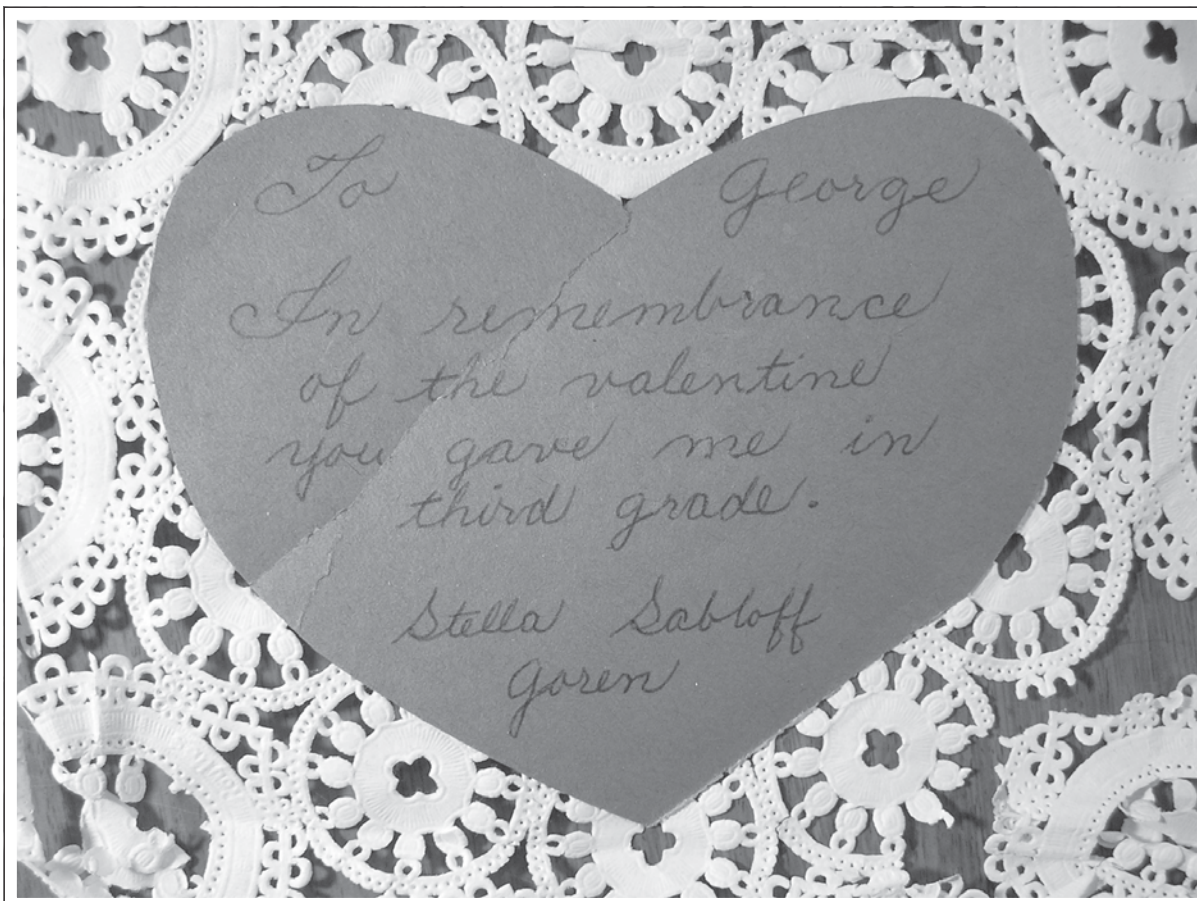 To George
In remembrance
of the valentine
you gave me in
third grade.
Stella Sabloff
Goren